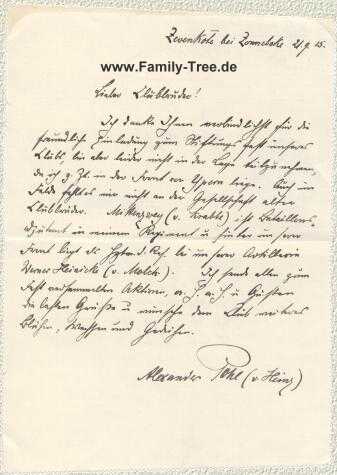 Zevenkote bei Zonnebeke 21.9.15.
www.Family-Tree.de
Lieber Clubbruder!
Ich danke Ihnen verbindlichst für die
freundliche Einladung zum Stiftungsfest unseres
Clubs, bin aber leider nicht in der Lage teilzunehmen,
da ich z. Zt. in der Front vor Ypern liege. Auch im
Felde fehlt es mir nicht an der Gesellschaft alter
Clubbrüder. Mittenzwey (v. ) ist Bataillons-
adjutant in meinem Regiment u. hinter unserer
Front liegt als bei unserer Artillerie
Werner Heinicke (v. Molch). Ich sende allen zum
Fest versammelten Aktiven, a. H. u. Gästen
die besten Grüsse u. wünsche dem Club weiteres
Blühen, Wachsen und Gedeihen.
Alexander Pohl (v. Heinz)